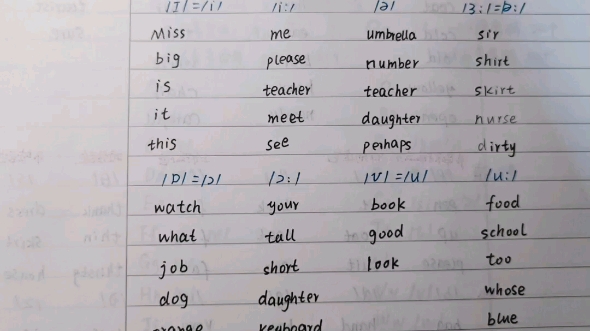 /I/=/i/ /i:/ /ə/ /3:/=/ə:/
Miss me umbrella sir
big please number shirt
is teacher teacher skirt
it meet daughter nurse
this see perhaps dirty
/ɒ/=/ɔ/ /ɔ:/ /ʊ/=/u/ /u:/
watch your book food
what tall good school
job short look too
dog daughter whose
orange keyboard blue